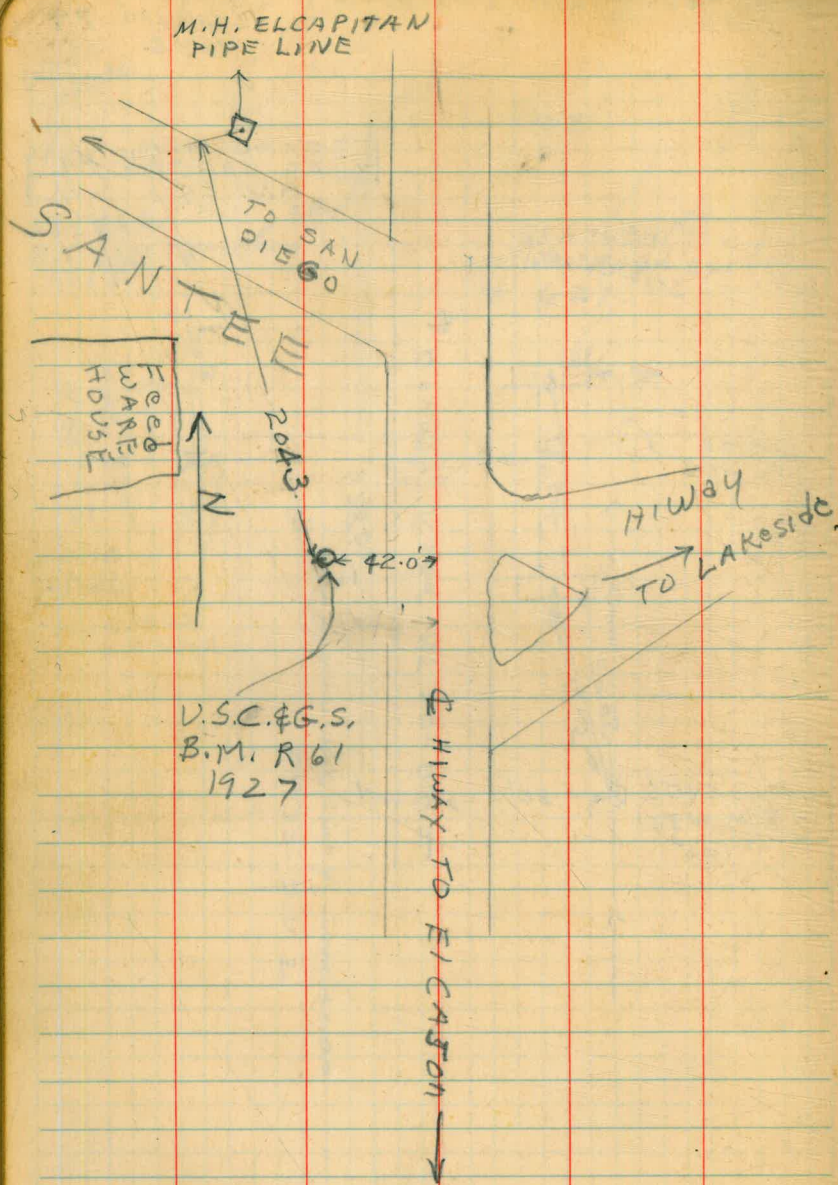 M.H. ELCAPITAN
PIPE LINE
TO SAN
DIEGO
SANTEE
FEED
WARE
HOUSE
N
2043
42.0'
HIWAY
TO LAKESIDE
U.S.C.&G.S.
B.M. R 61
1927
℄ HIWAY TO El CAJON